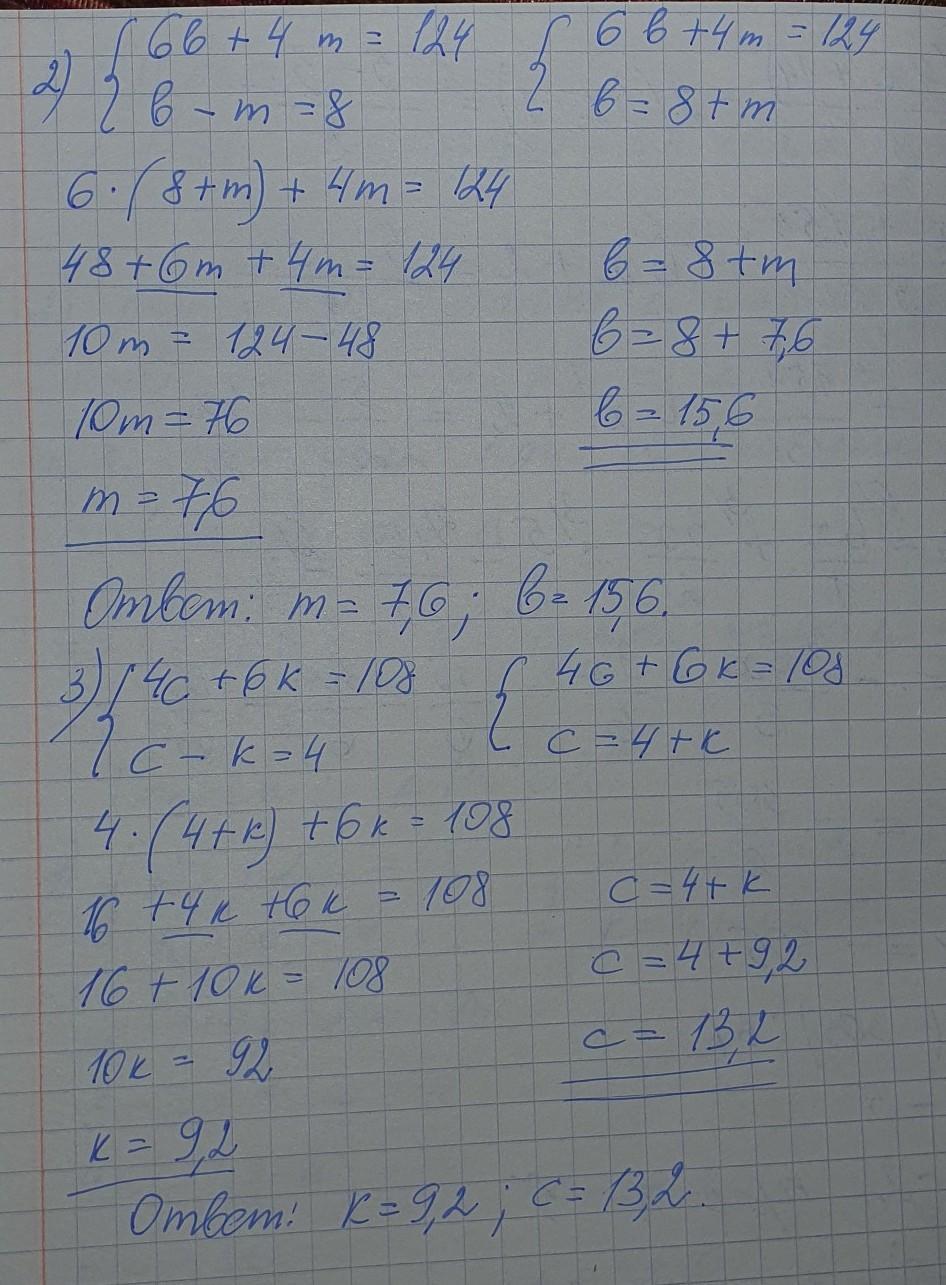 2) { 6в + 4 m = 124 { 6 в + 4m = 124
в - m = 8 в = 8 + m
6 · (8+m) + 4m = 124
48 + 6m + 4m = 124 в = 8 + m
10m = 124 - 48 в = 8 + 7,6
10m = 76 в = 15,6
m = 7,6
Ответ: m = 7,6 ; в = 15,6.
3) { 4c + 6к = 108 { 4c + 6к = 108
c - к = 4 c = 4 + к
4 · (4+к) + 6к = 108
16 + 4к + 6к = 108 c = 4 + к
16 + 10к = 108 c = 4 + 9,2
10к = 92 c = 13,2
к = 9,2
Ответ: к = 9,2 ; c = 13,2.